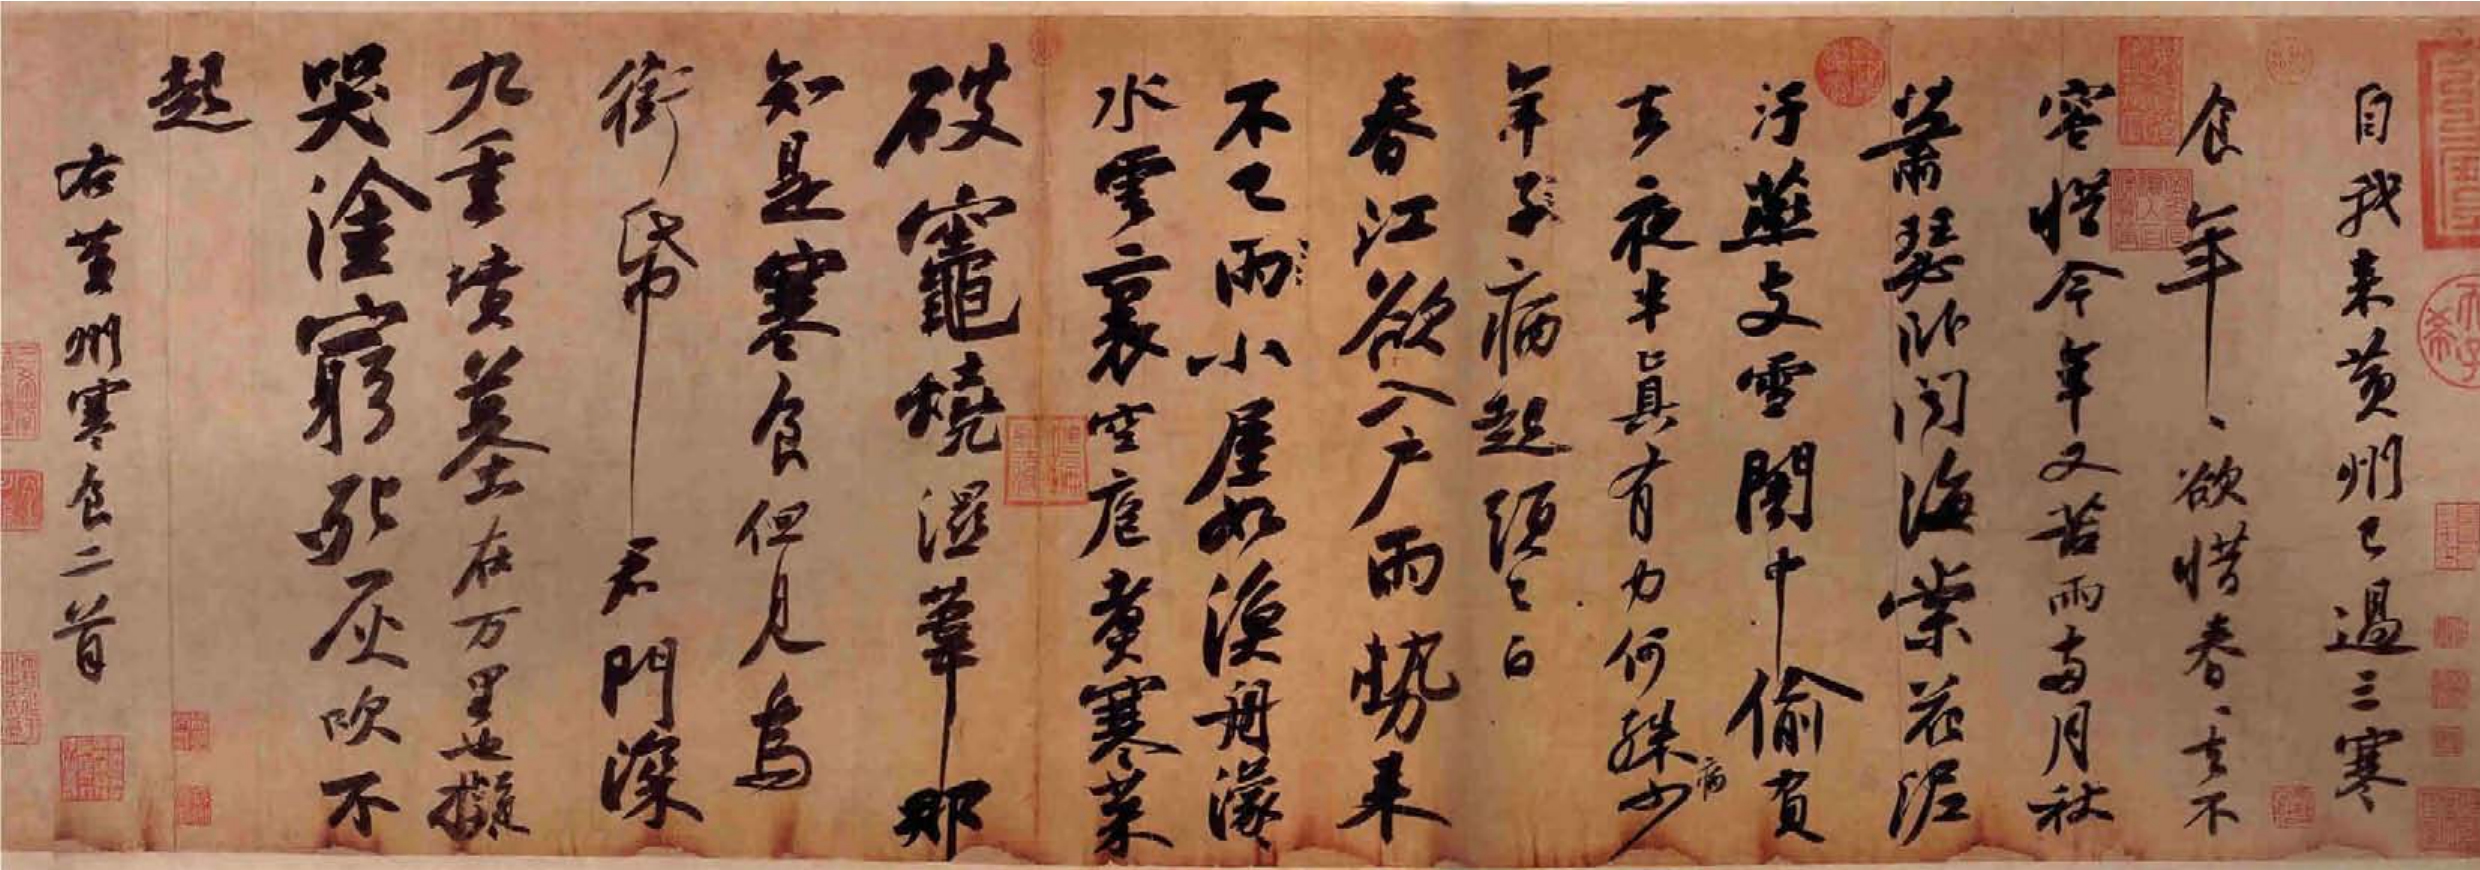 自我来黄州已過三寒
食年、欲惜春、去不
容惜今年又苦雨兩月秋
蕭瑟卧聞海棠花泥
汙燕支雪闇中偷負
去夜半真有力何殊少
年子病起頭已白
病
春江欲入户雨勢来
不已雨小屋如漁舟濛
水雲裏空庖煮寒菜
破竈燒濕葦那
知是寒食但見烏
銜帋君門深
九重墳墓在万里也擬
哭塗窮死灰吹不
起
右黄州寒食二首